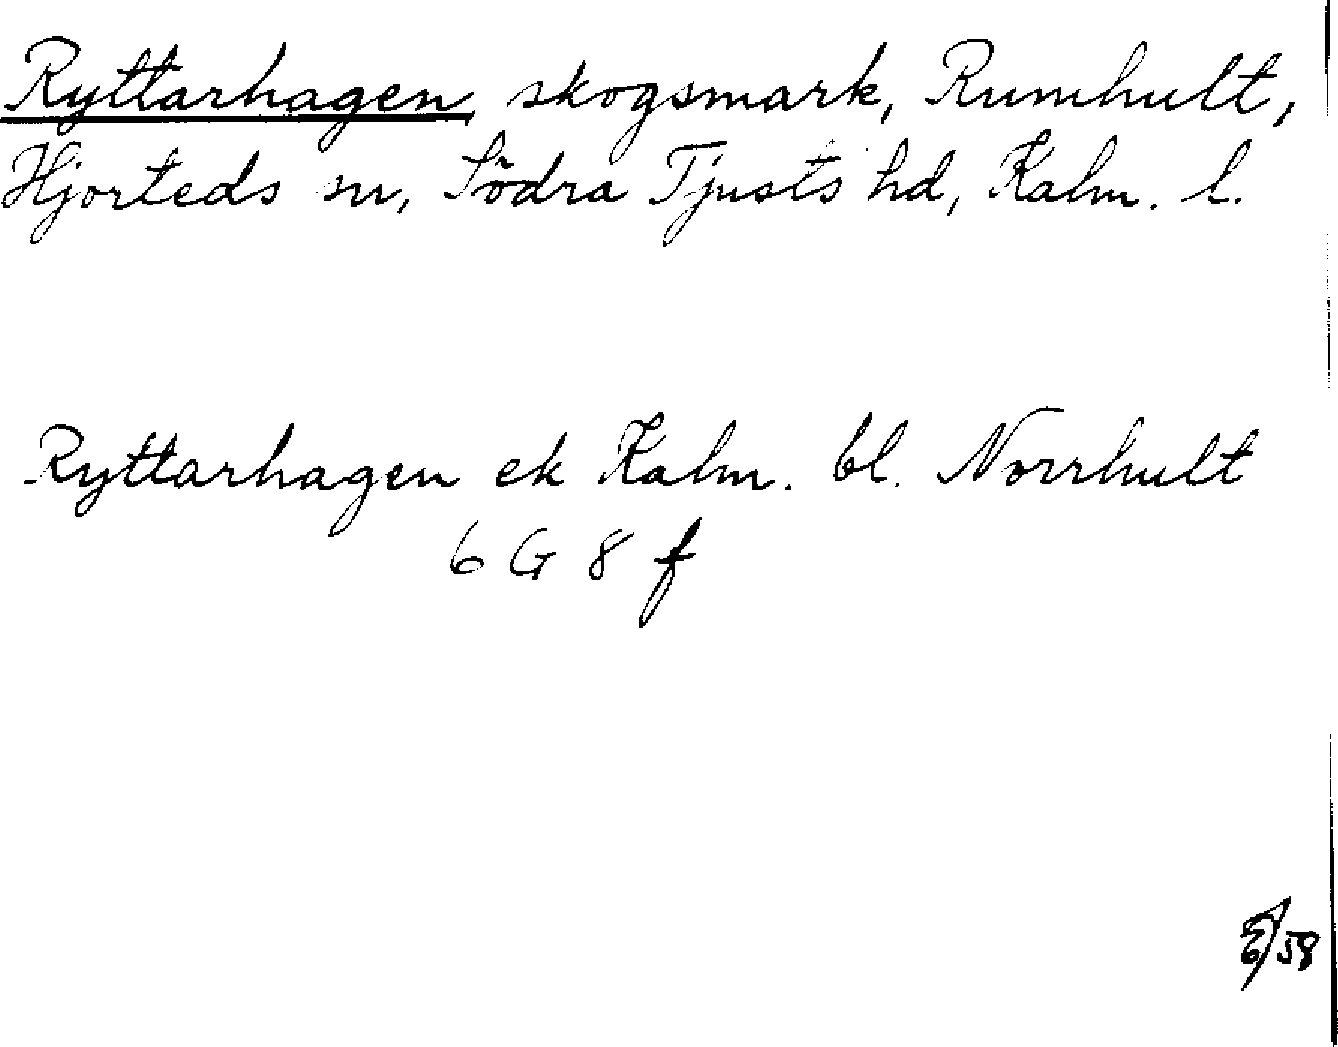 Ryttarhagen, skogsmark, Rumhult,
Hjorteds sn, Södra Tjusts hd, Kalm. l.
Ryttarhagen ek Kalm. bl. Norrhult
6 G 8 f
/58